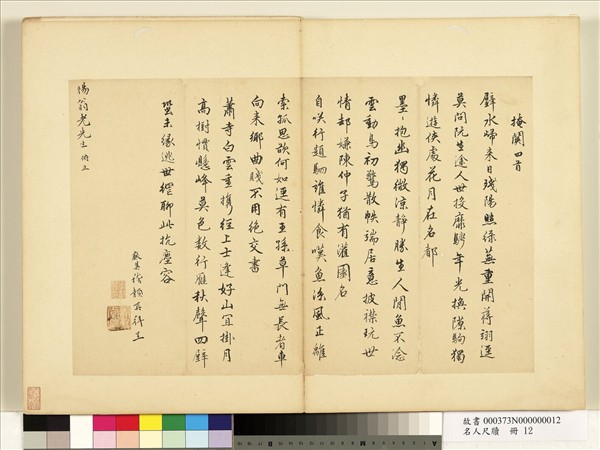 掩關四首
壁水歸来日殘陽照綠蕪重開蔣翊逕
莫問阮生途人世投靡騁年光換隙駒獨
憐遊俠處花月在名都
墨〻抱幽獨微涼靜勝生人閒魚不淰
雲動鳥初驚散帙端居意披襟玩世
情却嫌陳仲子猶有灌園名
自咲行類駉誰憐食嘆魚深風正離
索孤思欲何如逕有王孫草門無長者車
向来鄉曲賤不用絕交書
蕭寺白雲重攜經上士逢好山宜掛月
高樹慣懸峰莫色數行雁秋聲四壁
蛩未緣逃世網聊此抗塵容
翁老先生
故書 000373N000000012
名人尺牘 冊 12